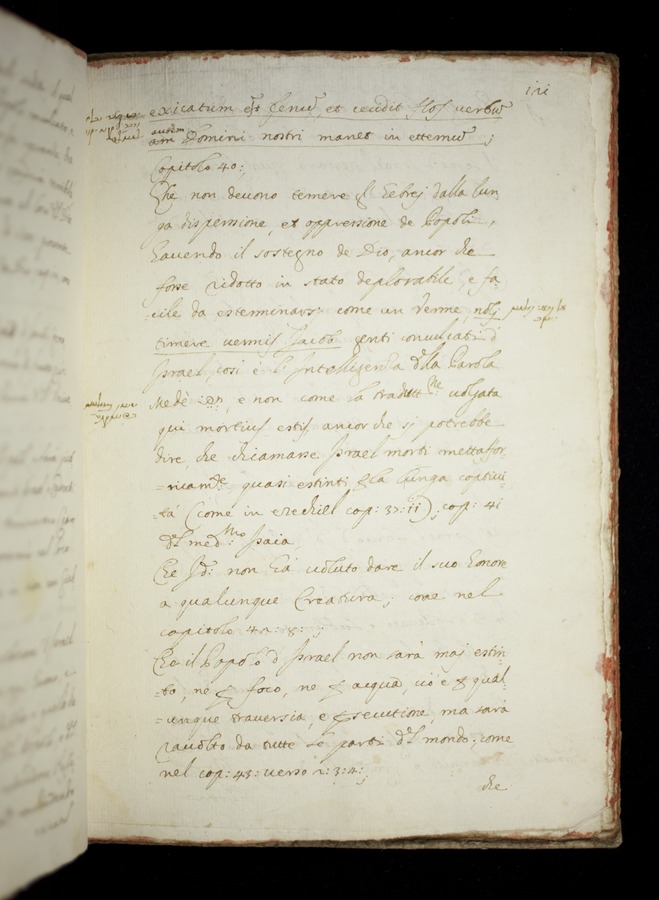 exicatum est fenũ, et cecidit flos verbũ
autem Domini nostri manet in etternũ;
Capitolo 40:;
Che non deuono temere gl' Eebrej dalla lun
ga dispersione, et oppressione de Popoli,
hauendo il sostegno de Dio, ancor che
fosse ridotto in stato deplorabile e fa
cile da esterminarsi come un Verme noli
timere vermis Jacob genti conculcati d
Israel, cosi è l'Intelligenza dlla Parola
Medè, e non come la tradutt.ne uolgata
qui mortius estis ancor che si potrebbe
dire, che chiamasse Israel morti mettaffor
=ricam.te quasi estinti p la lunga captiui
=tà (come in ezechiell cap: 37: 11); cap: 41
dl med.mo Isaia
Che Id: non hà uoluto dare il suo honore
a qualunque Creatura; come nel
capitolo 42: 8:;
Ch il Popolo d Israel non sarà mai estin
=to, ne p foco, ne p acqua, cioè p qual
=unque trauersia, e p secutione, ma sarà
racolto da tutte le parti dl mondo; come
nel cap: 43: verso 2: 3: 4:;
che